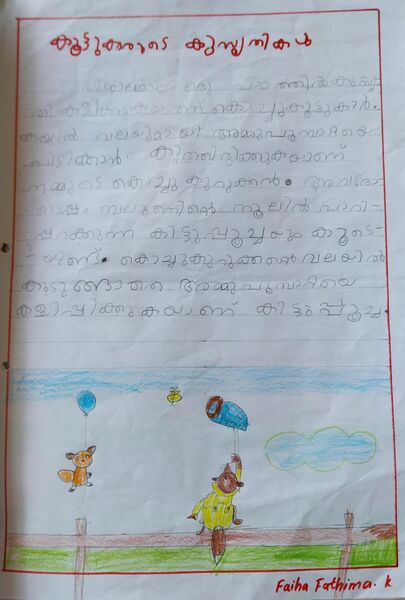 കൂട്ടുകാരുടെ കുസൃതികൾ
വിശാലമായ ഒരു പാടത്തിൽ കുസൃ-
തി കളിക്കുകയാണ് കൊച്ചുകൂട്ടുകാർ.
കയ്യിൽ വലയുമായി അമ്മുപൂമ്പാറ്റയെ
പിടിക്കാൻ കുതിക്കുകയാണ്
നമ്മുടെ കൊച്ചു കുറുക്കൻ. അവരോ-
ടൊപ്പം ബലൂണിന്റെ നൂലിൽ പാറി-
പ്പറക്കുന്ന കിട്ടുപ്പൂച്ചയും കൂടെ-
യുണ്ട്. കൊച്ചുകുറുക്കന്റെ വലയിൽ
കുടുങ്ങാതെ അമ്മുപൂമ്പാറ്റയെ
കളിപ്പിക്കുകയാണ് കിട്ടുപ്പൂച്ച.
Faiha Fathima. K